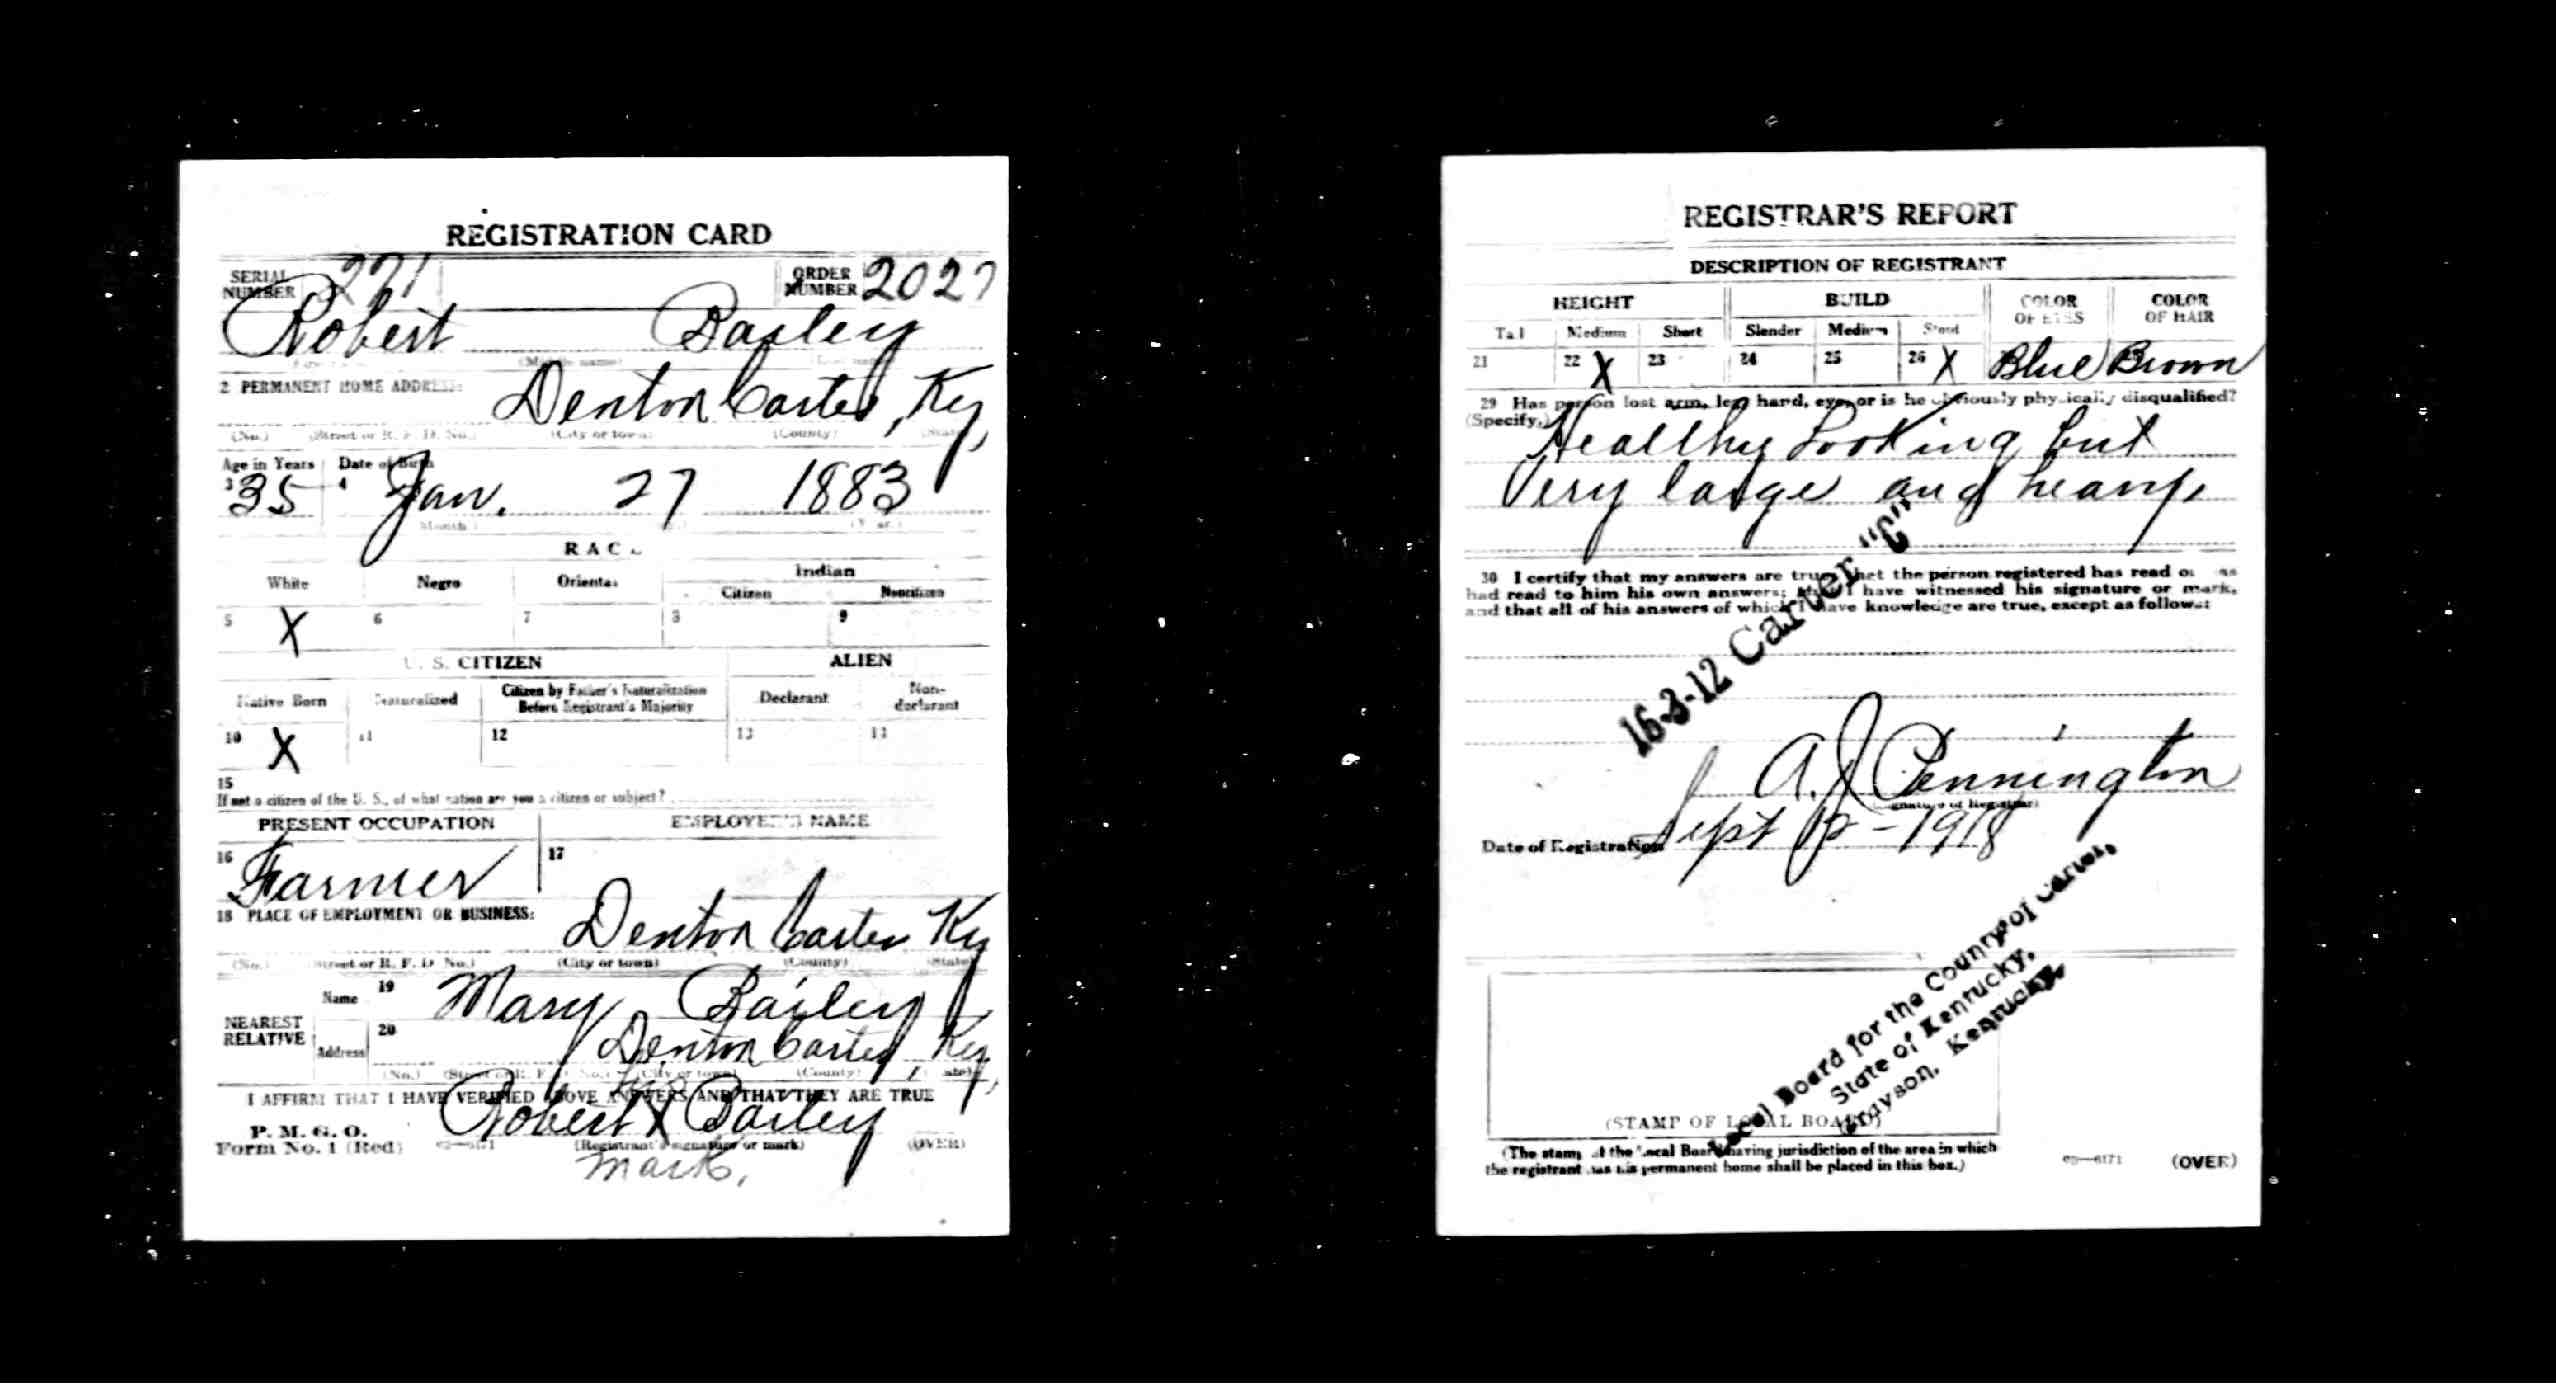 REGISTRATION CARD
SERIAL NUMBER 271 ORDER NUMBER 2027
Robert Bailey
(Middle name)
2 PERMANENT HOME ADDRESS:
Denton Carter, Ky,
(No.) (Street or R. F. D. No.) (City or town) (County) (State)
Age in Years Date of Birth
3 35 4 Jan. 27 1883
(Month) (Year)
RACE
White Negro Oriental Indian
Citizen Noncitizen
5 X 6 7 8 9
U. S. CITIZEN ALIEN
Native Born Naturalized Citizen by Father's Naturalization Before Registrant's Majority Declarant Non-declarant
10 X 11 12 13
15
If not a citizen of the U. S., of what nation are you a citizen or subject?
PRESENT OCCUPATION EMPLOYER'S NAME
16 Farmer 17
18 PLACE OF EMPLOYMENT OR BUSINESS:
Denton Carter Ky
(No.) (Street or R. F. D. No.) (City or town) (County) (State)
NEAREST RELATIVE
Name 19 Mary Bailey
Address 20 Denton Carter, Ky,
(No.) (Street or R. F. D. No.) (City or town) (County) (State)
I AFFIRM THAT I HAVE VERIFIED ABOVE ANSWERS AND THAT THEY ARE TRUE
his
Robert X Bailey
P. M. G. O.
Form No. 1 (Red) (Registrant's signature or mark) (OVER)
mark.
REGISTRAR'S REPORT
DESCRIPTION OF REGISTRANT
HEIGHT BUILD COLOR OF EYES COLOR OF HAIR
Tall Medium Short Slender Medium Stout
21 22 X 23 24 25 26 X Blue Brown
29 Has person lost arm, leg, hand, eye, or is he obviously physically disqualified?
(Specify.)
Healthy Looking but
Very large and heavy.
30 I certify that my answers are true; that the person registered has read or has
had read to him his own answers; that I have witnessed his signature or mark,
and that all of his answers of which I have knowledge are true, except as follows:
16-3-12 Carter "C"
A. J. Pennington
(Signature of Registrar)
Date of Registration Sept 12 - 1918
Local Board for the County of Carter,
State of Kentucky,
Grayson, Kentucky.
(STAMP OF LOCAL BOARD)
(The stamp of the Local Board having jurisdiction of the area in which
the registrant has his permanent home shall be placed in this box.)
(OVER)